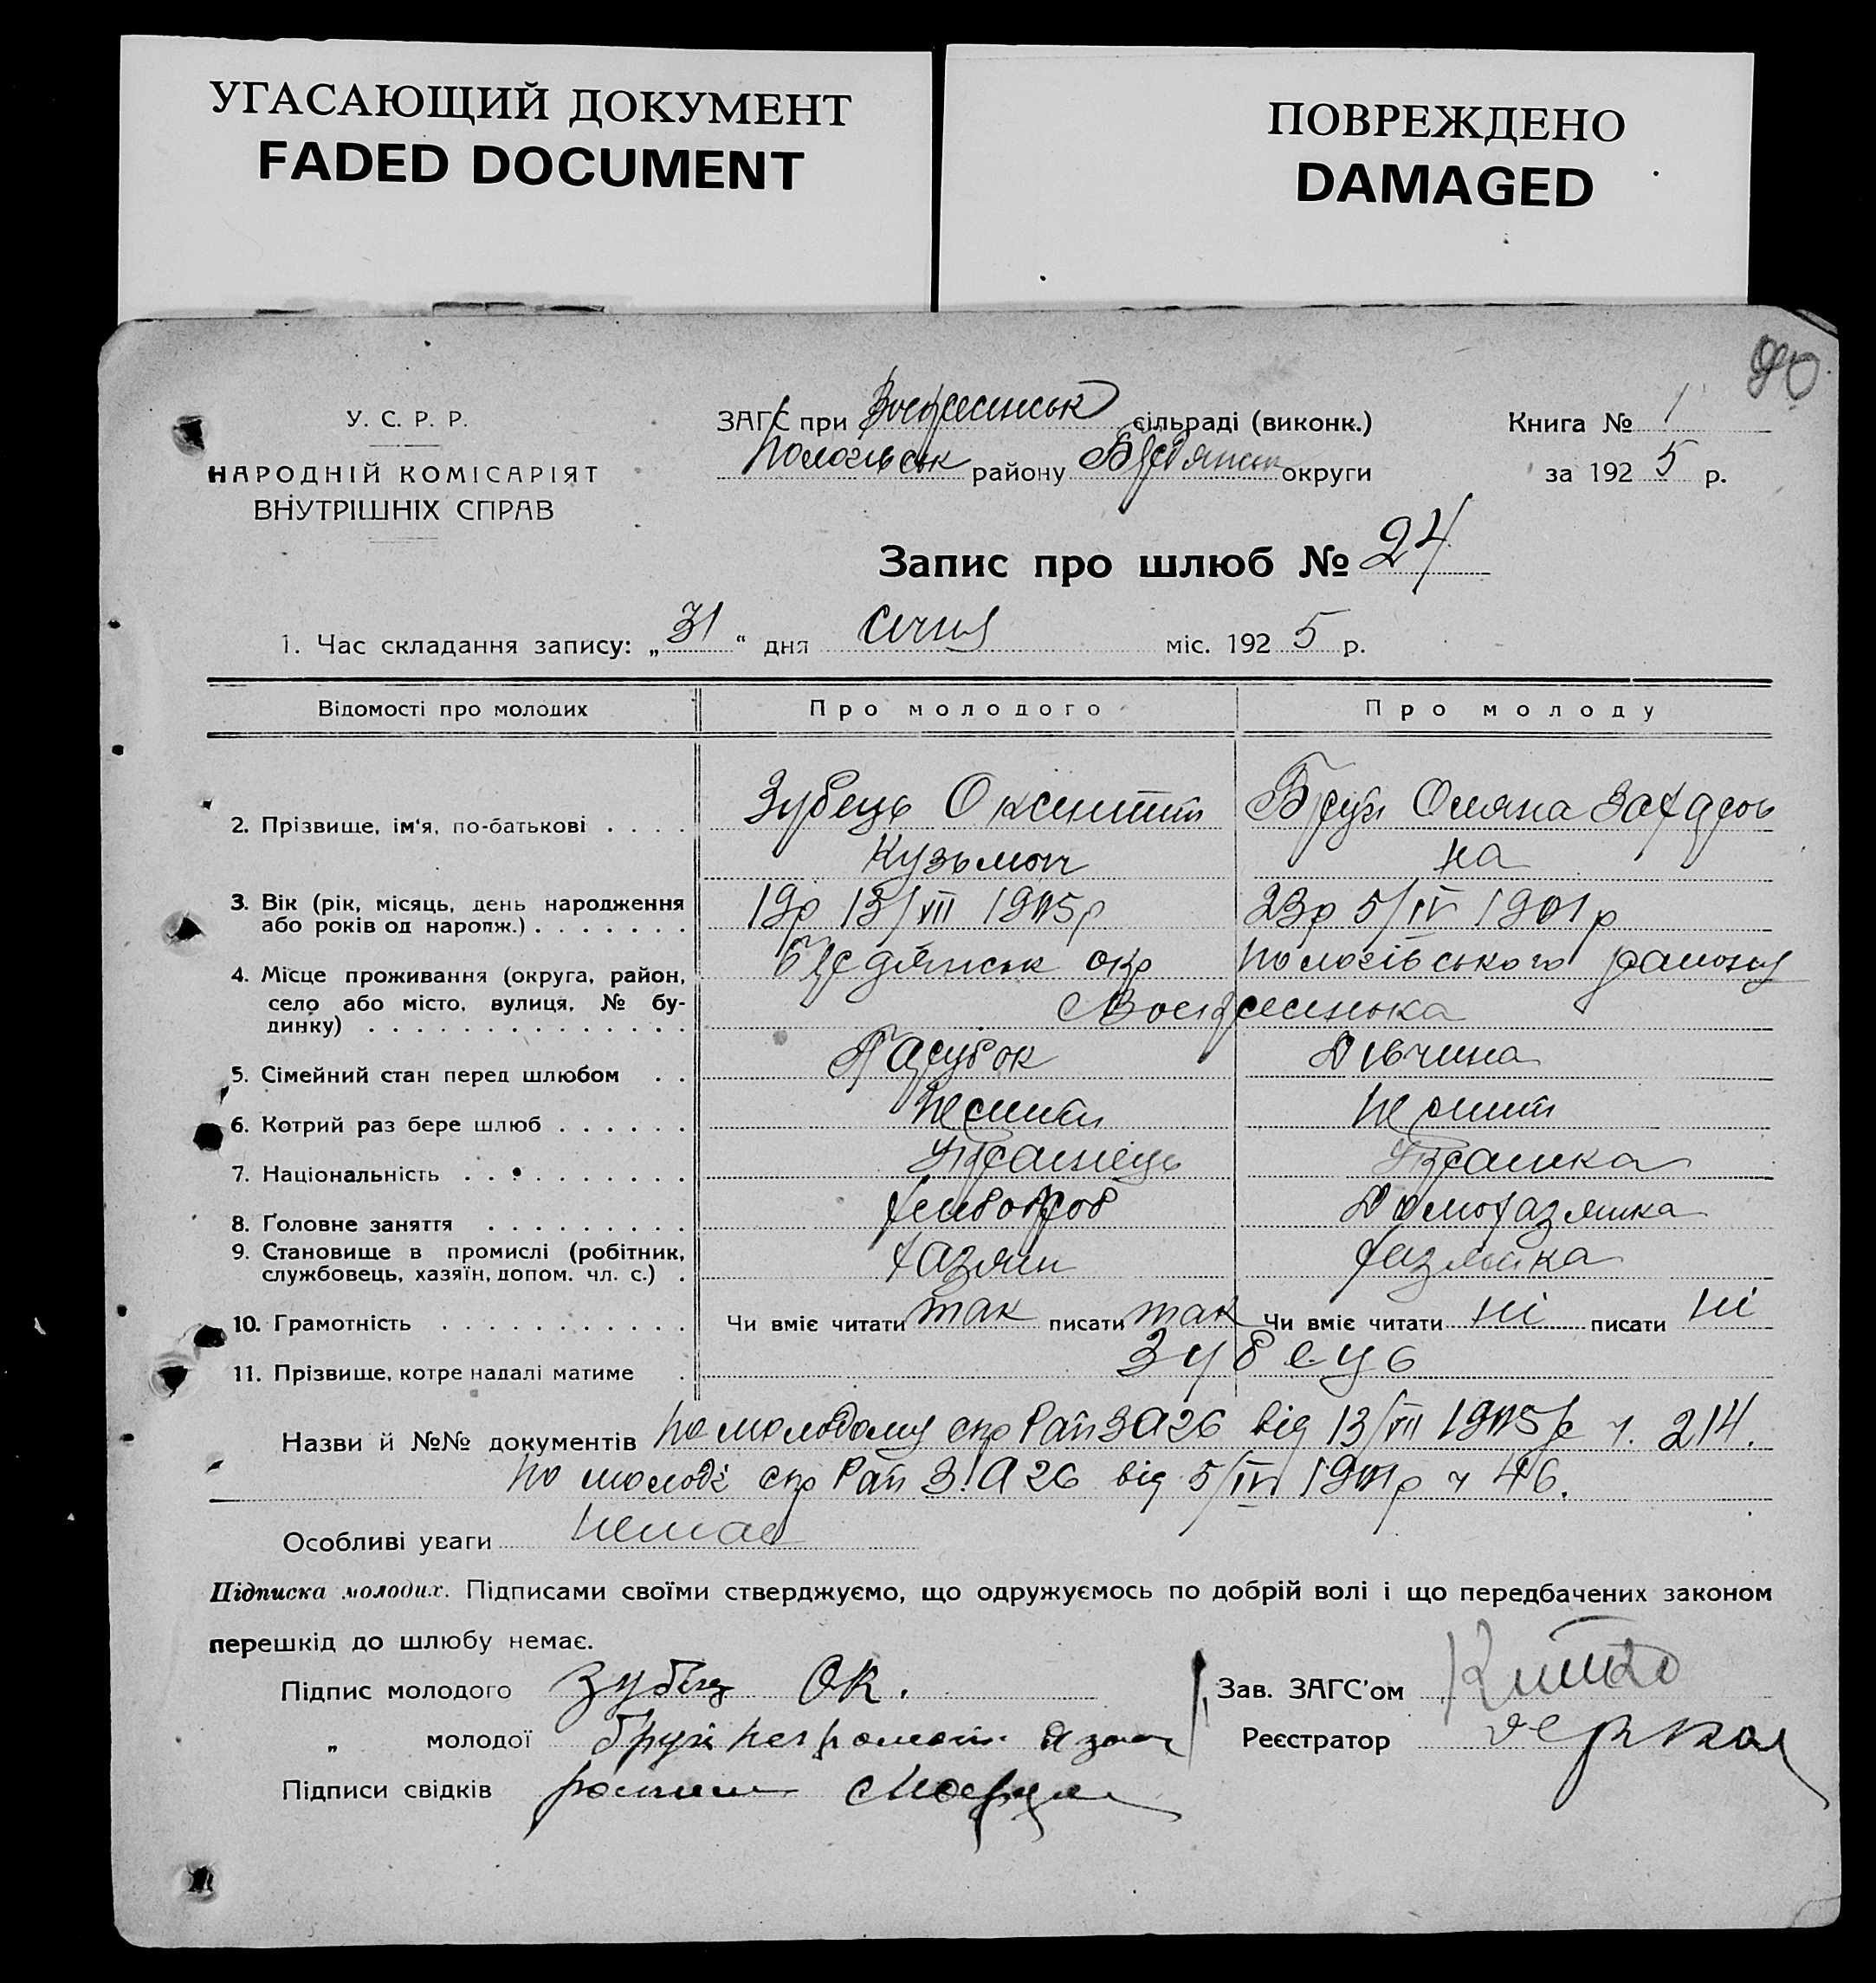 УГАСАЮЩИЙ ДОКУМЕНТ
FADED DOCUMENT
ПОВРЕЖДЕНО
DAMAGED
90
У. С. Р. Р.
НАРОДНІЙ КОМІСАРІЯТ
ВНУТРІШНІХ СПРАВ
ЗАГС при Воскресенськ сільраді (виконк.)
Пологівськ району Бердянськ округи
Книга № 1
за 1925 р.
Запис про шлюб № 24
1. Час складання запису: „31“ дня Січня міс. 1925 р.
Відомості про молодих Про молодого Про молоду
2. Прізвище, ім'я, по-батькові . . . . Зубець Оксентій Бруй Ояна Захаров
Кузьмич на
3. Вік (рік, місяць, день народження 19р 13/VII 1905р 23р 5/IV 1901р
або років од народж.) . . . . . . .
4. Місце проживання (округа, район, Бердянськ окр Пологівського району
село або місто, вулиця, № бу- Воскресенька
динку) . . . . . . . . . . . . . .
5. Сімейний стан перед шлюбом . . Парубок Дівчина
6. Котрий раз бере шлюб . . . . . . Первий Перший
7. Національність . . . . . . . . . . Українець Українка
8. Головне заняття . . . . . . . . . хлібороб Домохазяйка
9. Становище в промислі (робітник, хазяїн хазяйка
службовець, хазяїн, допом. чл. с.) .
10. Грамотність . . . . . . . . . . . Чи вміє читати так писати так Чи вміє читати ні писати ні
11. Прізвище, котре надалі матиме . Зубець
Назви й №№ документів По молодому спр Рай ЗАГС від 13/VII 1905р ч. 214.
по молоді спр Рай ЗАГС від 5/IV 1901р ч 46.
Особливі уваги немає
Підписка молодих. Підписами своїми стверджуємо, що одружуємось по добрій волі і що передбачених законом
перешкід до шлюбу немає.
Підпис молодого Зубец ОК.
„ молодої Бруй неграмот. а за неї
Підписи свідків
Зав. ЗАГС'ом
Реєстратор